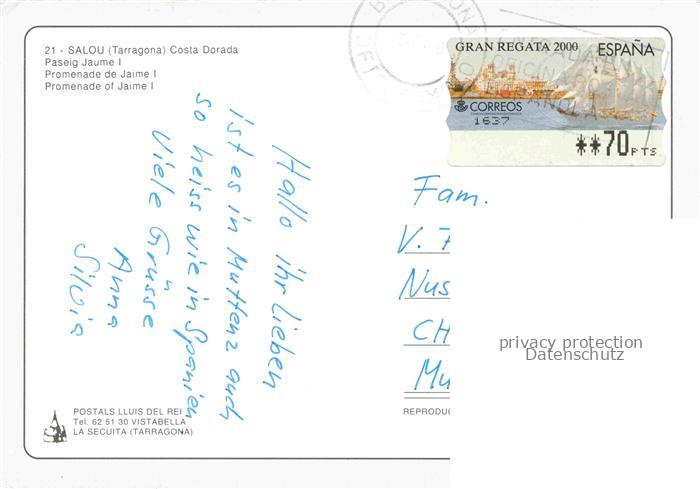 21 - SALOU (Tarragona) Costa Dorada
Paseig Jaume I
Promenade de Jaime I
Promenade of Jaime I
GRAN REGATA 2000 ESPAÑA
CORREOS
1637
**70 PTS
Hallo ihr Lieben
ist es in Muttenz auch
so heiss wie in Spanien
Viele Grüsse
Anna
Silvia
Fam.
V.
Nus
CH
Mu
privacy protection
Datenschutz
POSTALS LLUIS DEL REI
Tel. 62 51 30 VISTABELLA
LA SECUITA (TARRAGONA)
REPRODUC